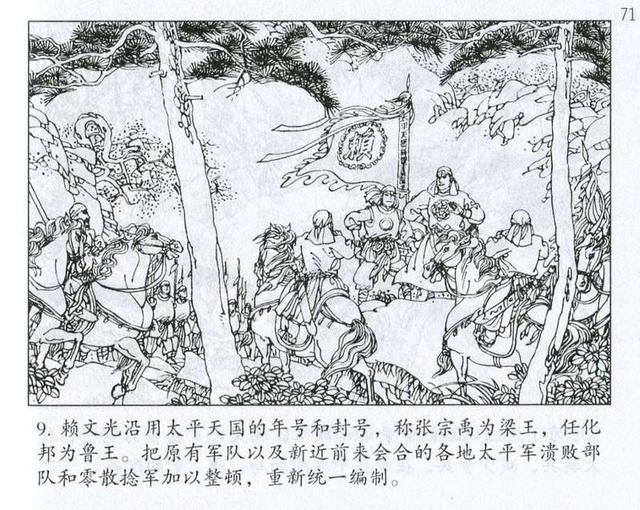 71
賴
9. 赖文光沿用太平天国的年号和封号，称张宗禹为梁王，任化
邦为鲁王。把原有军队以及新近前来会合的各地太平军溃败部
队和零散捻军加以整顿，重新统一编制。